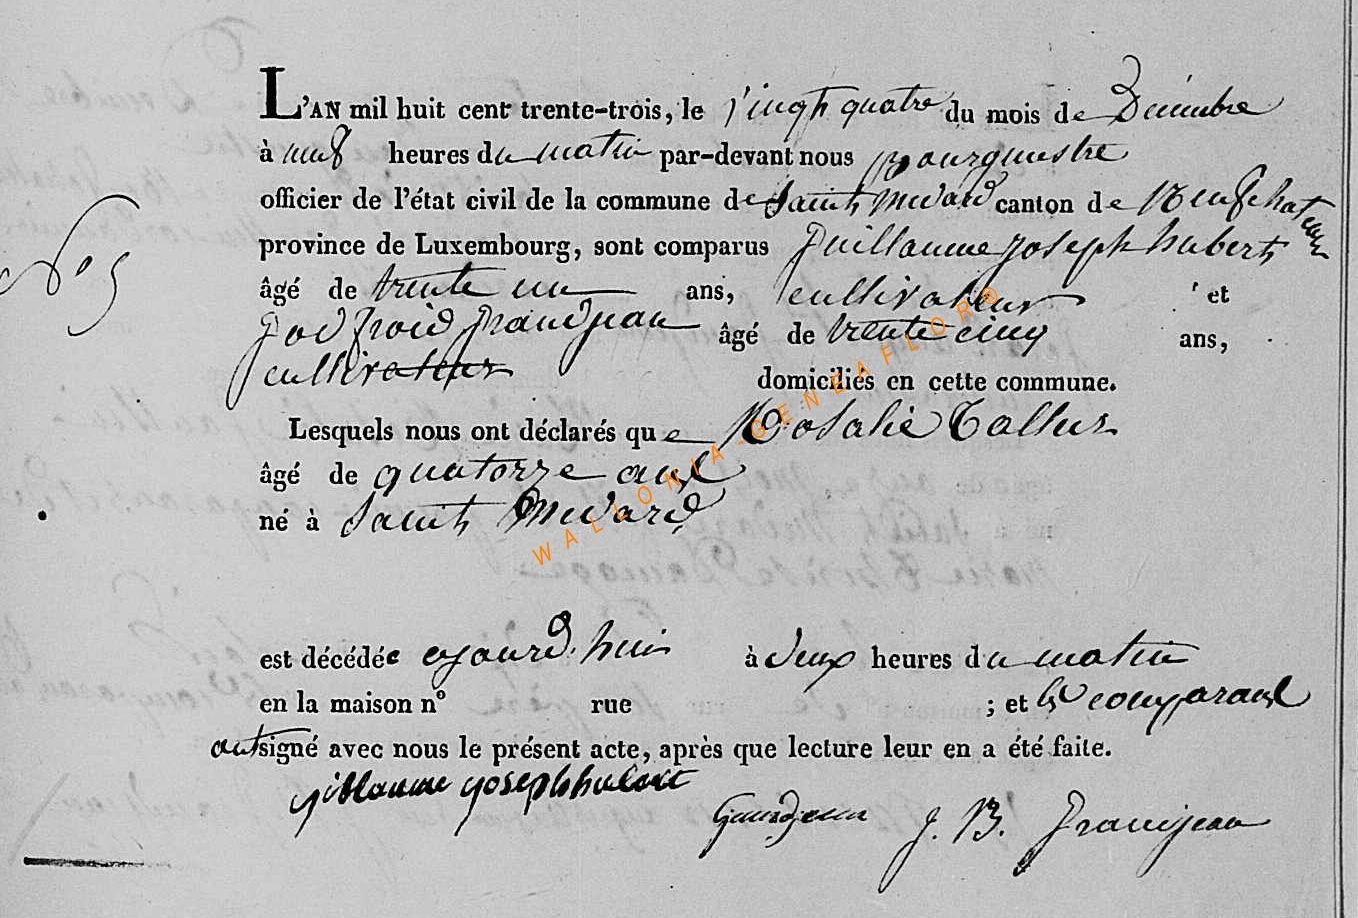 L'AN mil huit cent trente-trois, le vingt quatre du mois de Decembre
à neuf heures du matin par-devant nous Bourguestre
officier de l'état civil de la commune de Saint Medard canton de Neufchateau
province de Luxembourg, sont comparus Guillaume joseph hubert
N° 5
âgé de trente un ans, cultivateur et
Godfroid Grandjean âgé de trente cinq ans,
cultivateur domiciliés en cette commune.
Lesquels nous ont déclarés que Rosalie Collur
âgé de quatorze ans
né à Saint Medard
WALLONIA-GENEAFLOR®
est décédée ajourd'huis à deux heures du matin
en la maison n° rue ; et les comparans
ont signé avec nous le présent acte, après que lecture leur en a été faite.
guillaume joseph hubert
Grandjean J. B. Grandjean